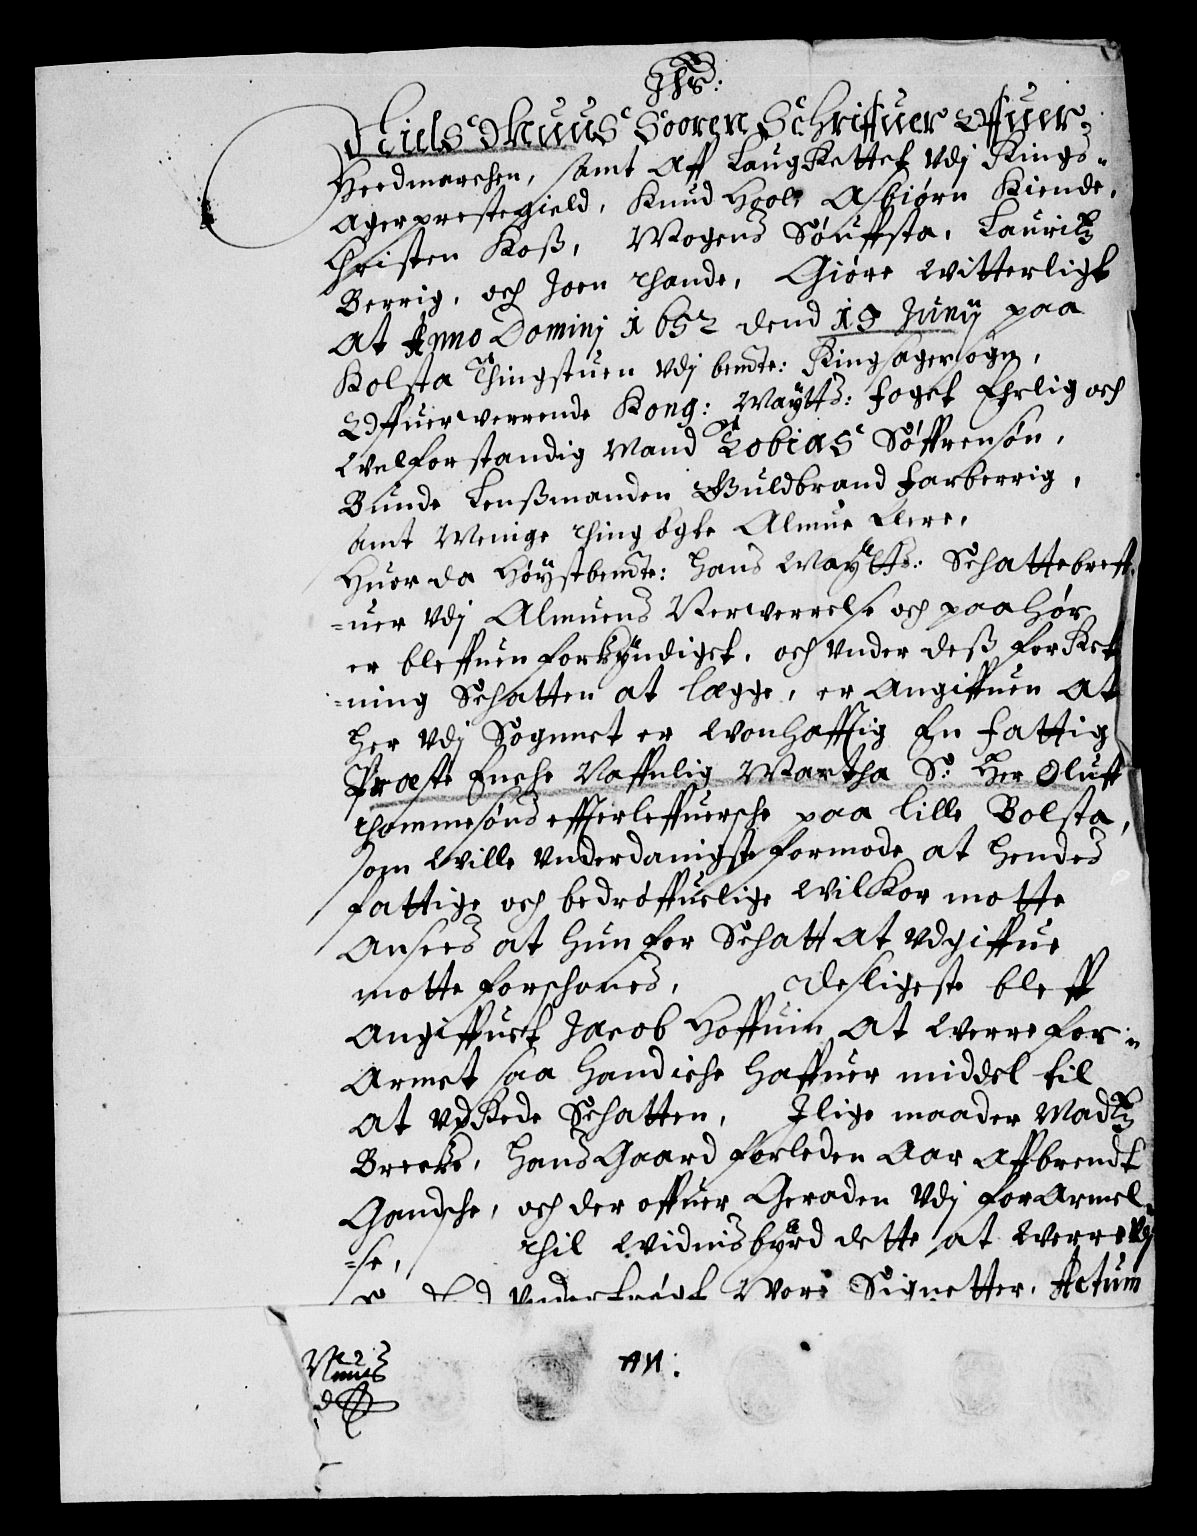 Jhs:
Niels Muus Sooren Schriffuer Offuer
Heedmarchen, samt Aff LaugRettet Vdj Rings-
ager prestegield, Knud Hool, Asbiørn Kiende,
Christen Koß, Mogens Søuffsta, Lauritz
Berrig, och Joen Thande, Giøre Witterligt
At Anno Dominj 1652 dend 19 Junij paa
Kolsta Thingstuen Vdj bemte: Ringsager sogn,
Offuerwerrende Kong: Maytts: foget Ehrlig och
Welforstandig Mand Tobias Søffrensøn,
Bunde Lenßmanden Guldbrand Farberrig,
samt Menige Thingsøgte Almue flere,
Huor da Høystbemte: Hans Maytts: Schattebreff-
-uer Vdj Almuens Nerwerrelse och paahør
er bleffuen forkyndiget, och Vnder deß forRet-
-ning Schatten at legge, er Angiffuen At
her Vdj Sognnet er Wonhafftig En fattig
Præste Enche Naffnlig Martha Sl: Her Oluff
Thommesøns effterleffuersche paa lille Bolsta,
som Wille Vnderdanigste formode at hendes
fattige och bedrøffuelige WilKor motte
Ansees at hun for Schatt At Vdgiffue
motte forschones, Desligeste bleff
Angiffuet Jacob Hoffuin At Werre for-
Armet saa hand iche haffuer middel til
At VdRede Schatten, Jlige maader Madtz
Brecke, hans Gaard forleden Aar Affbrendt
Gandsche, och der offuer Geraden Vdj forArmel-
-se, Thil Widnisbyrd dette at Werre Vdj
Vndertrøgt Wore Signetter, Actum
N Muus
AN: